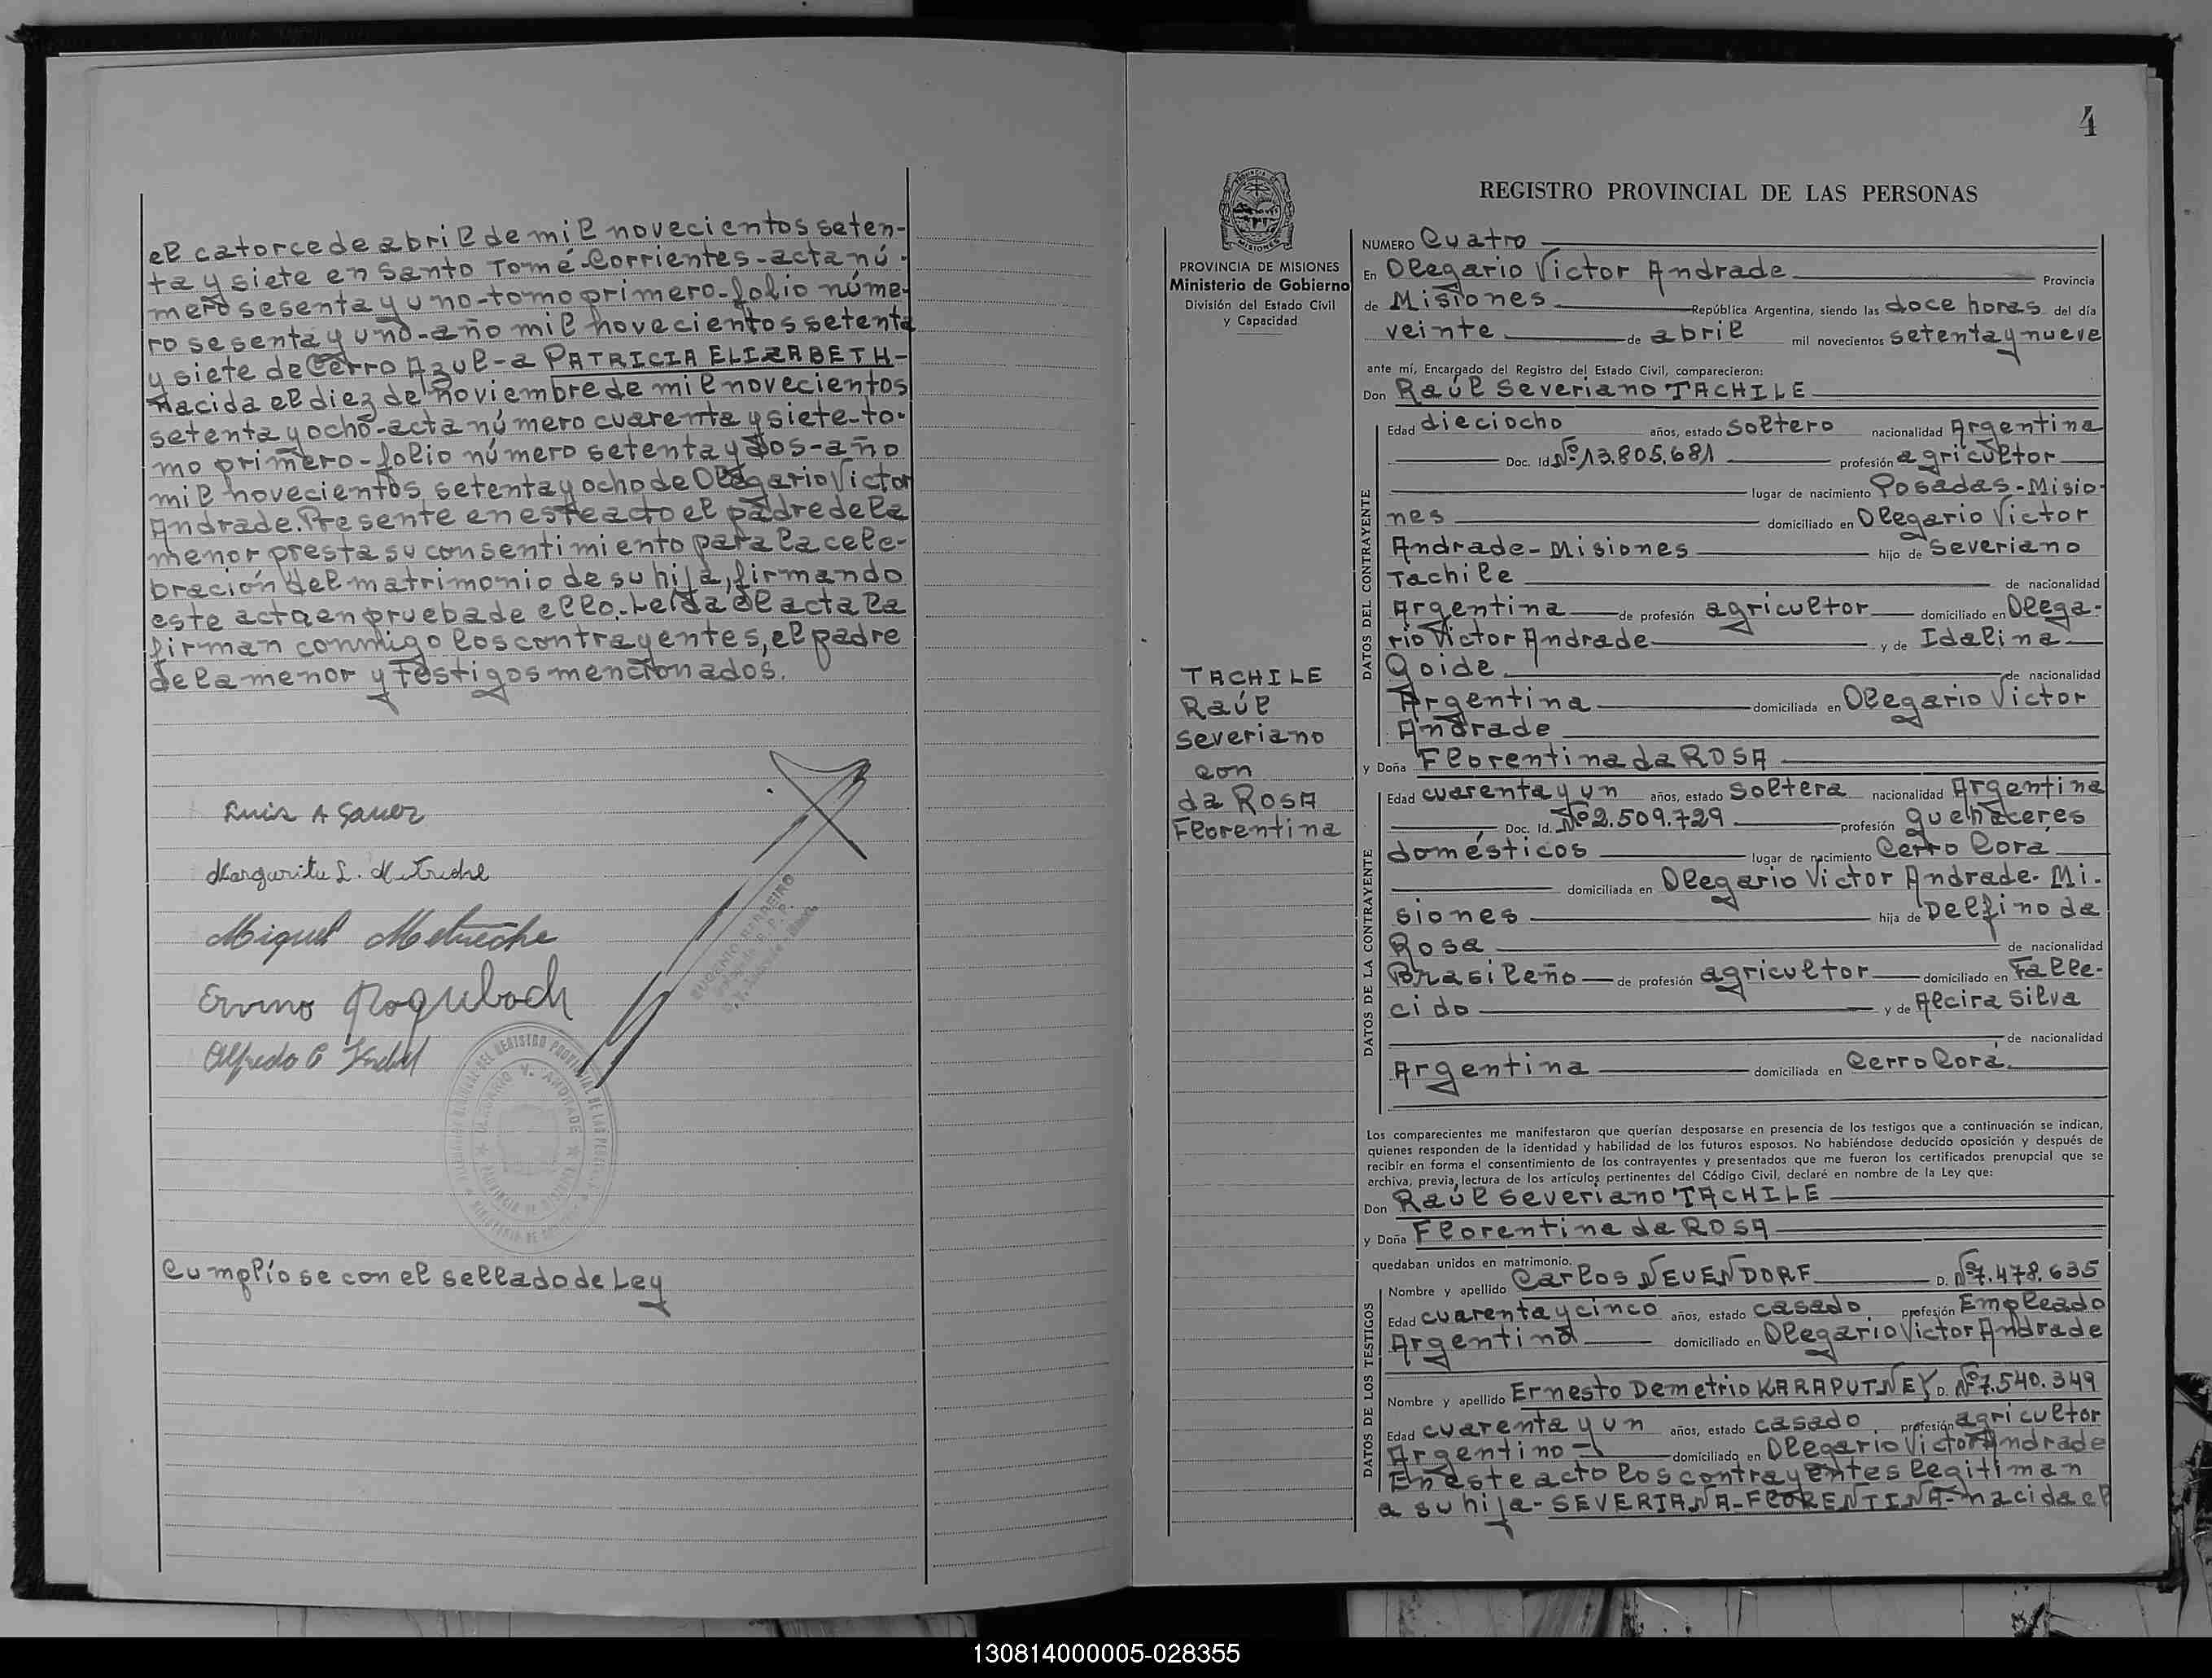 el catorce de abril de mil novecientos seten-
ta y siete en Santo Tomé-Corrientes-acta nú-
mero sesenta y uno-tomo primero-folio núme-
ro sesenta y uno-año mil novecientos setenta
y siete de Cerro Azul-a PATRICIA ELIZABETH-
nacida el diez de noviembre de mil novecientos
setenta y ocho-acta número cuarenta y siete-to-
mo primero-folio número setenta y dos-año
mil novecientos setenta y ocho de Olegario Victor
Andrade. Presente en este acto el padre de la
menor presta su consentimiento para la cele-
bración del matrimonio de su hija, firmando
este acta en prueba de ello. Leída el acta la
firman conmigo los contrayentes, el padre
de la menor y testigos mencionados.
Luis A
Margarita L.
Miguel
Alfredo
EUGENIO
Cumplíose con el sellado de Ley
4
PROVINCIA DE MISIONES
Ministerio de Gobierno
División del Estado Civil
y Capacidad
TACHILE
Raúl
Severiano
con
da ROSA
Florentina
REGISTRO PROVINCIAL DE LAS PERSONAS
NUMERO Cuatro
En Olegario Victor Andrade Provincia
de Misiones República Argentina, siendo las doce horas del día
veinte de abril mil novecientos setenta y nueve
ante mí, Encargado del Registro del Estado Civil, comparecieron:
Don Raúl Severiano TACHILE
DATOS DEL CONTRAYENTE
Edad dieciocho años, estado Soltero nacionalidad Argentina
Doc. Id. Nº 13.805.681 profesión agricultor
lugar de nacimiento Posadas-Misio-
nes domiciliado en Olegario Victor
Andrade-Misiones hijo de Severiano
Tachile de nacionalidad
Argentina de profesión agricultor domiciliado en Olega-
rio Victor Andrade y de Idalina
Goide de nacionalidad
Argentina domiciliada en Olegario Victor
Andrade
y Doña Florentina da ROSA
DATOS DE LA CONTRAYENTE
Edad cuarenta y un años, estado Soltera nacionalidad Argentina
Doc. Id. Nº 2.509.729 profesión quehaceres
domésticos lugar de nacimiento Cerro Corá
domiciliada en Olegario Victor Andrade-Mi-
siones hija de Delfino da
Rosa de nacionalidad
Brasileño de profesión agricultor domiciliado en Falle-
cido y de Alcira Silva
de nacionalidad
Argentina domiciliada en Cerro Corá.
Los comparecientes me manifestaron que querían desposarse en presencia de los testigos que a continuación se indican,
quienes responden de la identidad y habilidad de los futuros esposos. No habiéndose deducido oposición y después de
recibir en forma el consentimiento de los contrayentes y presentados que me fueron los certificados prenupcial que se
archiva, previa lectura de los artículos pertinentes del Código Civil, declaré en nombre de la Ley que:
Don Raúl Severiano TACHILE
y Doña Florentina da ROSA
quedaban unidos en matrimonio.
DATOS DE LOS TESTIGOS
Nombre y apellido Carlos NEUENDORF D. Nº 7.478.635
Edad cuarenta y cinco años, estado casado profesión Empleado
Argentino domiciliado en Olegario Victor Andrade
Nombre y apellido Ernesto Demetrio KARAPUTNEY D. Nº 7.540.349
Edad cuarenta y un años, estado casado profesión agricultor
Argentino domiciliado en Olegario Victor Andrade
En este acto los contrayentes legitiman
a su hija-SEVERIANA-FLORENTINA-nacida el
130814000005-028355